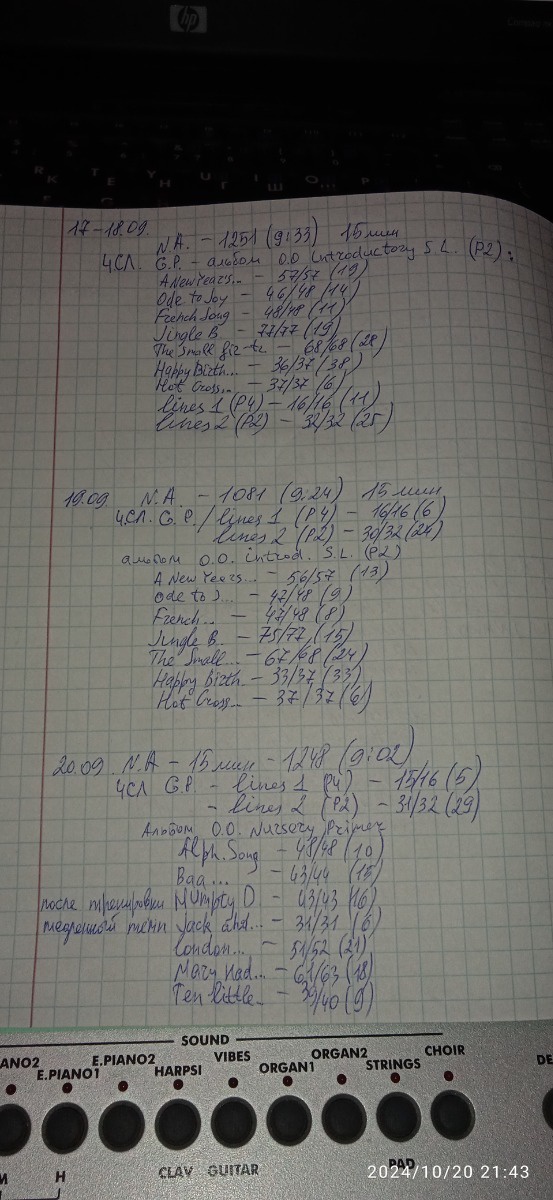 hp
17-18.09
N.A. - 1251 (9:33) 15 мин
4СЛ. G.P. - альбом O.O Introductory S L. (P2):
A New Years... - 57/57 (19)
Ode to Joy - 46/48 (14)
French Song - 48/48 (11)
Jingle B. - 77/77 (19)
The Small - 68/68 (28)
Happy Birth... - 36/37 (38)
Hot Cross... - 37/37 (6)
lines 1 (P4) - 16/16 (11)
lines 2 (P2) - 32/32 (25)
19.09 N.A. - 1081 (9:24) 15 мин
4СЛ. G.P./ lines 1 (P4) - 16/16 (6)
lines 2 (P2) - 30/32 (24)
альбом O.O. introd. S.L. (P2)
A New Years... - 56/57 (13)
Ode to J... - 47/48 (9)
French... - 47/48 (8)
Jingle B.. - 75/77 (15)
The Small... - 67/68 (24)
Happy Birth - 33/37 (33)
Hot Cross... - 37/37 (6)
20.09 N.A - 15 мин - 1248 (9:02)
4СЛ G.P. - lines 1 (P4) - 15/16 (5)
- lines 2 (P2) - 31/32 (29)
Альбом O.O. Nursery Primer
Alph. Song - 48/48 (10)
Baa... - 43/44 (15)
после тренировки Humpty D - 43/43 (16)
медленный темп Jack and... - 31/31 (6)
London... - 51/52 (21)
Mary had... - 61/63 (18)
Ten little.. - 39/40 (9)
SOUND
ANO2 E.PIANO1 E.PIANO2 HARPSI VIBES ORGAN1 ORGAN2 STRINGS CHOIR DE
M H CLAV GUITAR PAD
2024/10/20 21:43